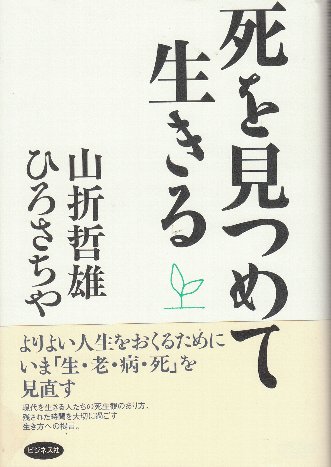 死を見つめて
生きる
山折哲雄
ひろさちや
よりよい人生をおくるために
いま「生・老・病・死」を
見直す
現代を生きる人たちの死生観のあり方、
残された時間を大切に過ごす
生き方への提言。
ビジネス社